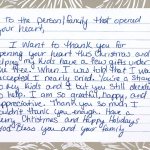 To the person/family that opened
your heart,
I want to thank you for
opening your heart this Christmas and
helping my kids have a few gifts under
the tree. When I was told that I was
accepted I nearly cried. You're a stranger
to my kids and I but you still decided
to help. I am so grateful, happy, and
appreciative. Thank you so much I
couldn't thank you enough. Have a
Merry Christmas and Happy Holidays!
God Bless you and your family